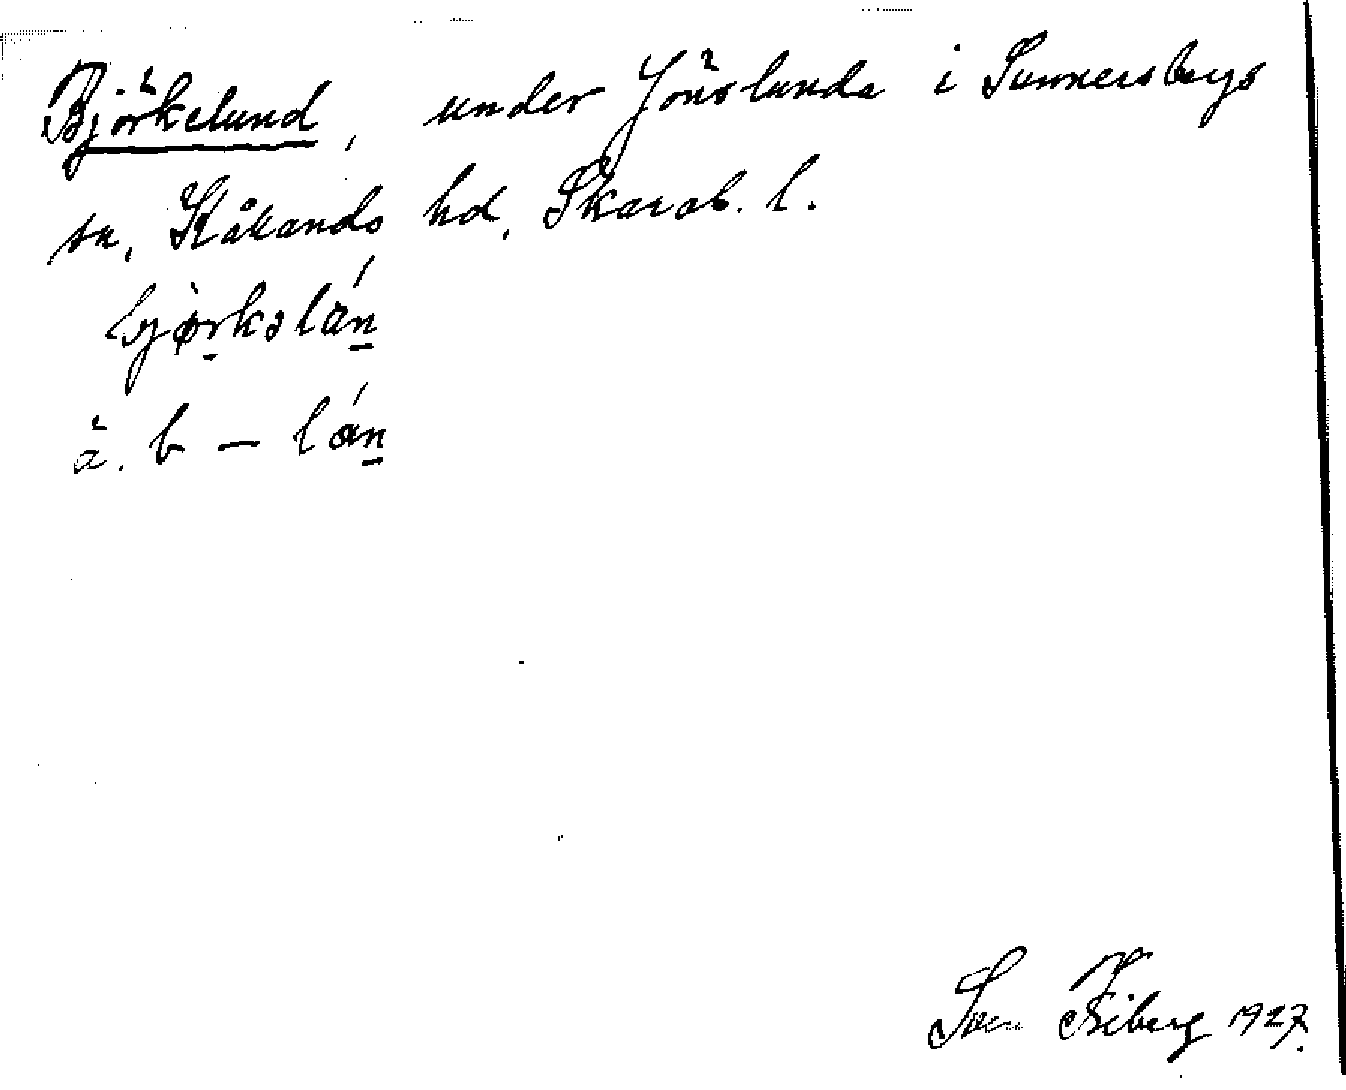 Björkelund, under Jönslunda i Sunnersbergs
sn, Kålands hd, Skarab. l.
bjørkəlán
ä. b – lán
Sven Fiberg 1927.